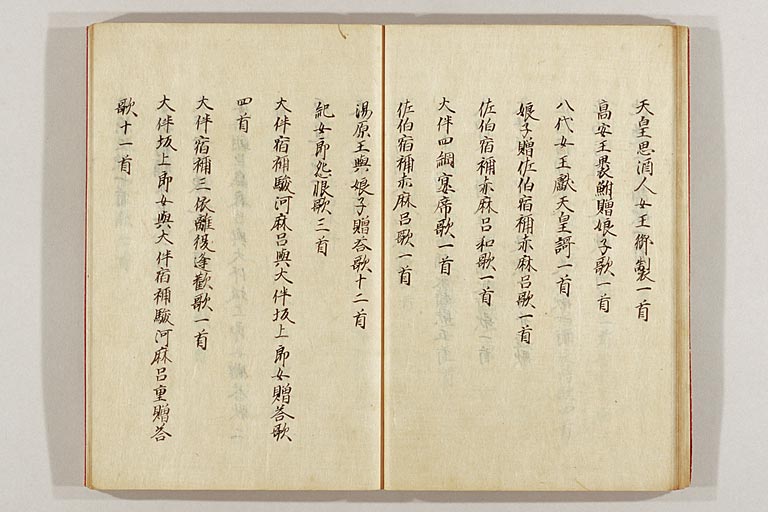 天皇思酒人女王御製一首
高安王裹鮒贈娘子歌一首
八代女王獻天皇謌一首
娘子贈佐伯宿祢赤麻呂歌一首
佐伯宿祢赤麻呂和歌一首
大伴四綱宴席歌一首
佐伯宿祢赤麻呂歌一首
湯原王與娘子贈答歌十二首
紀女郎怨恨歌三首
大伴宿祢駿河麻呂與大伴坂上郎女贈答歌
四首
大伴宿祢三依離後逢歡歌一首
大伴坂上郎女與大伴宿祢駿河麻呂重贈答
歌十一首